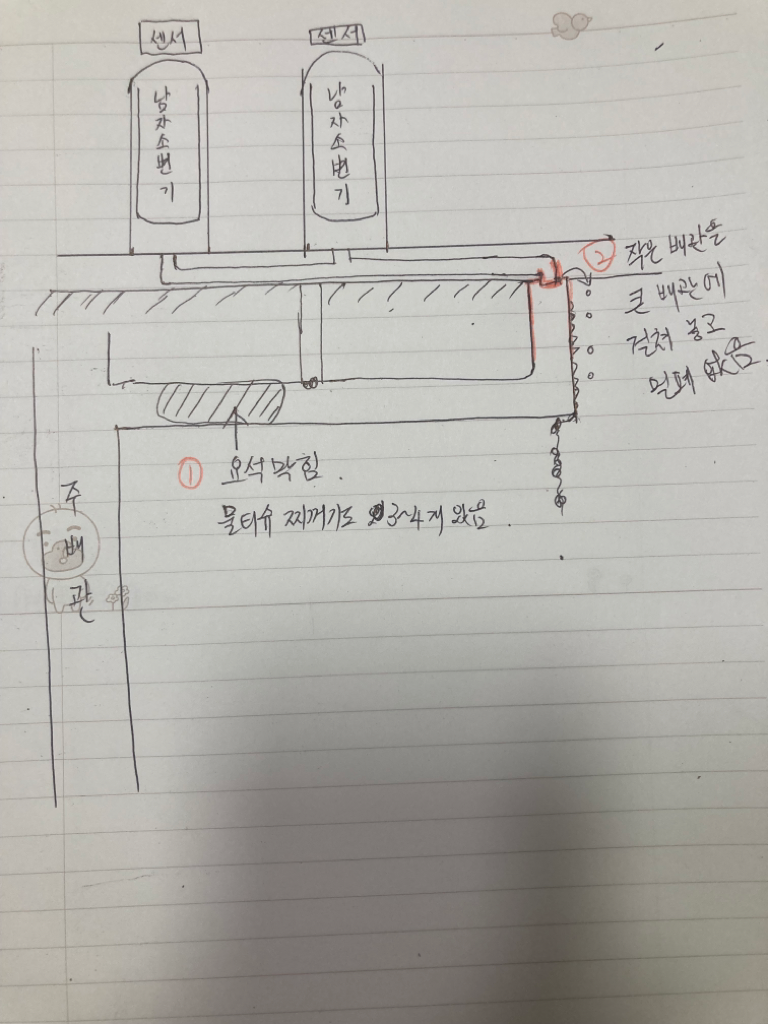 센서
센서
남자소변기
남자소변기
② 작은 배관을
큰 배관에
걸쳐 놓고
밀폐 없음.
① 요석 막힘.
물티슈 찌꺼기도 3~4개 있음.
주배관